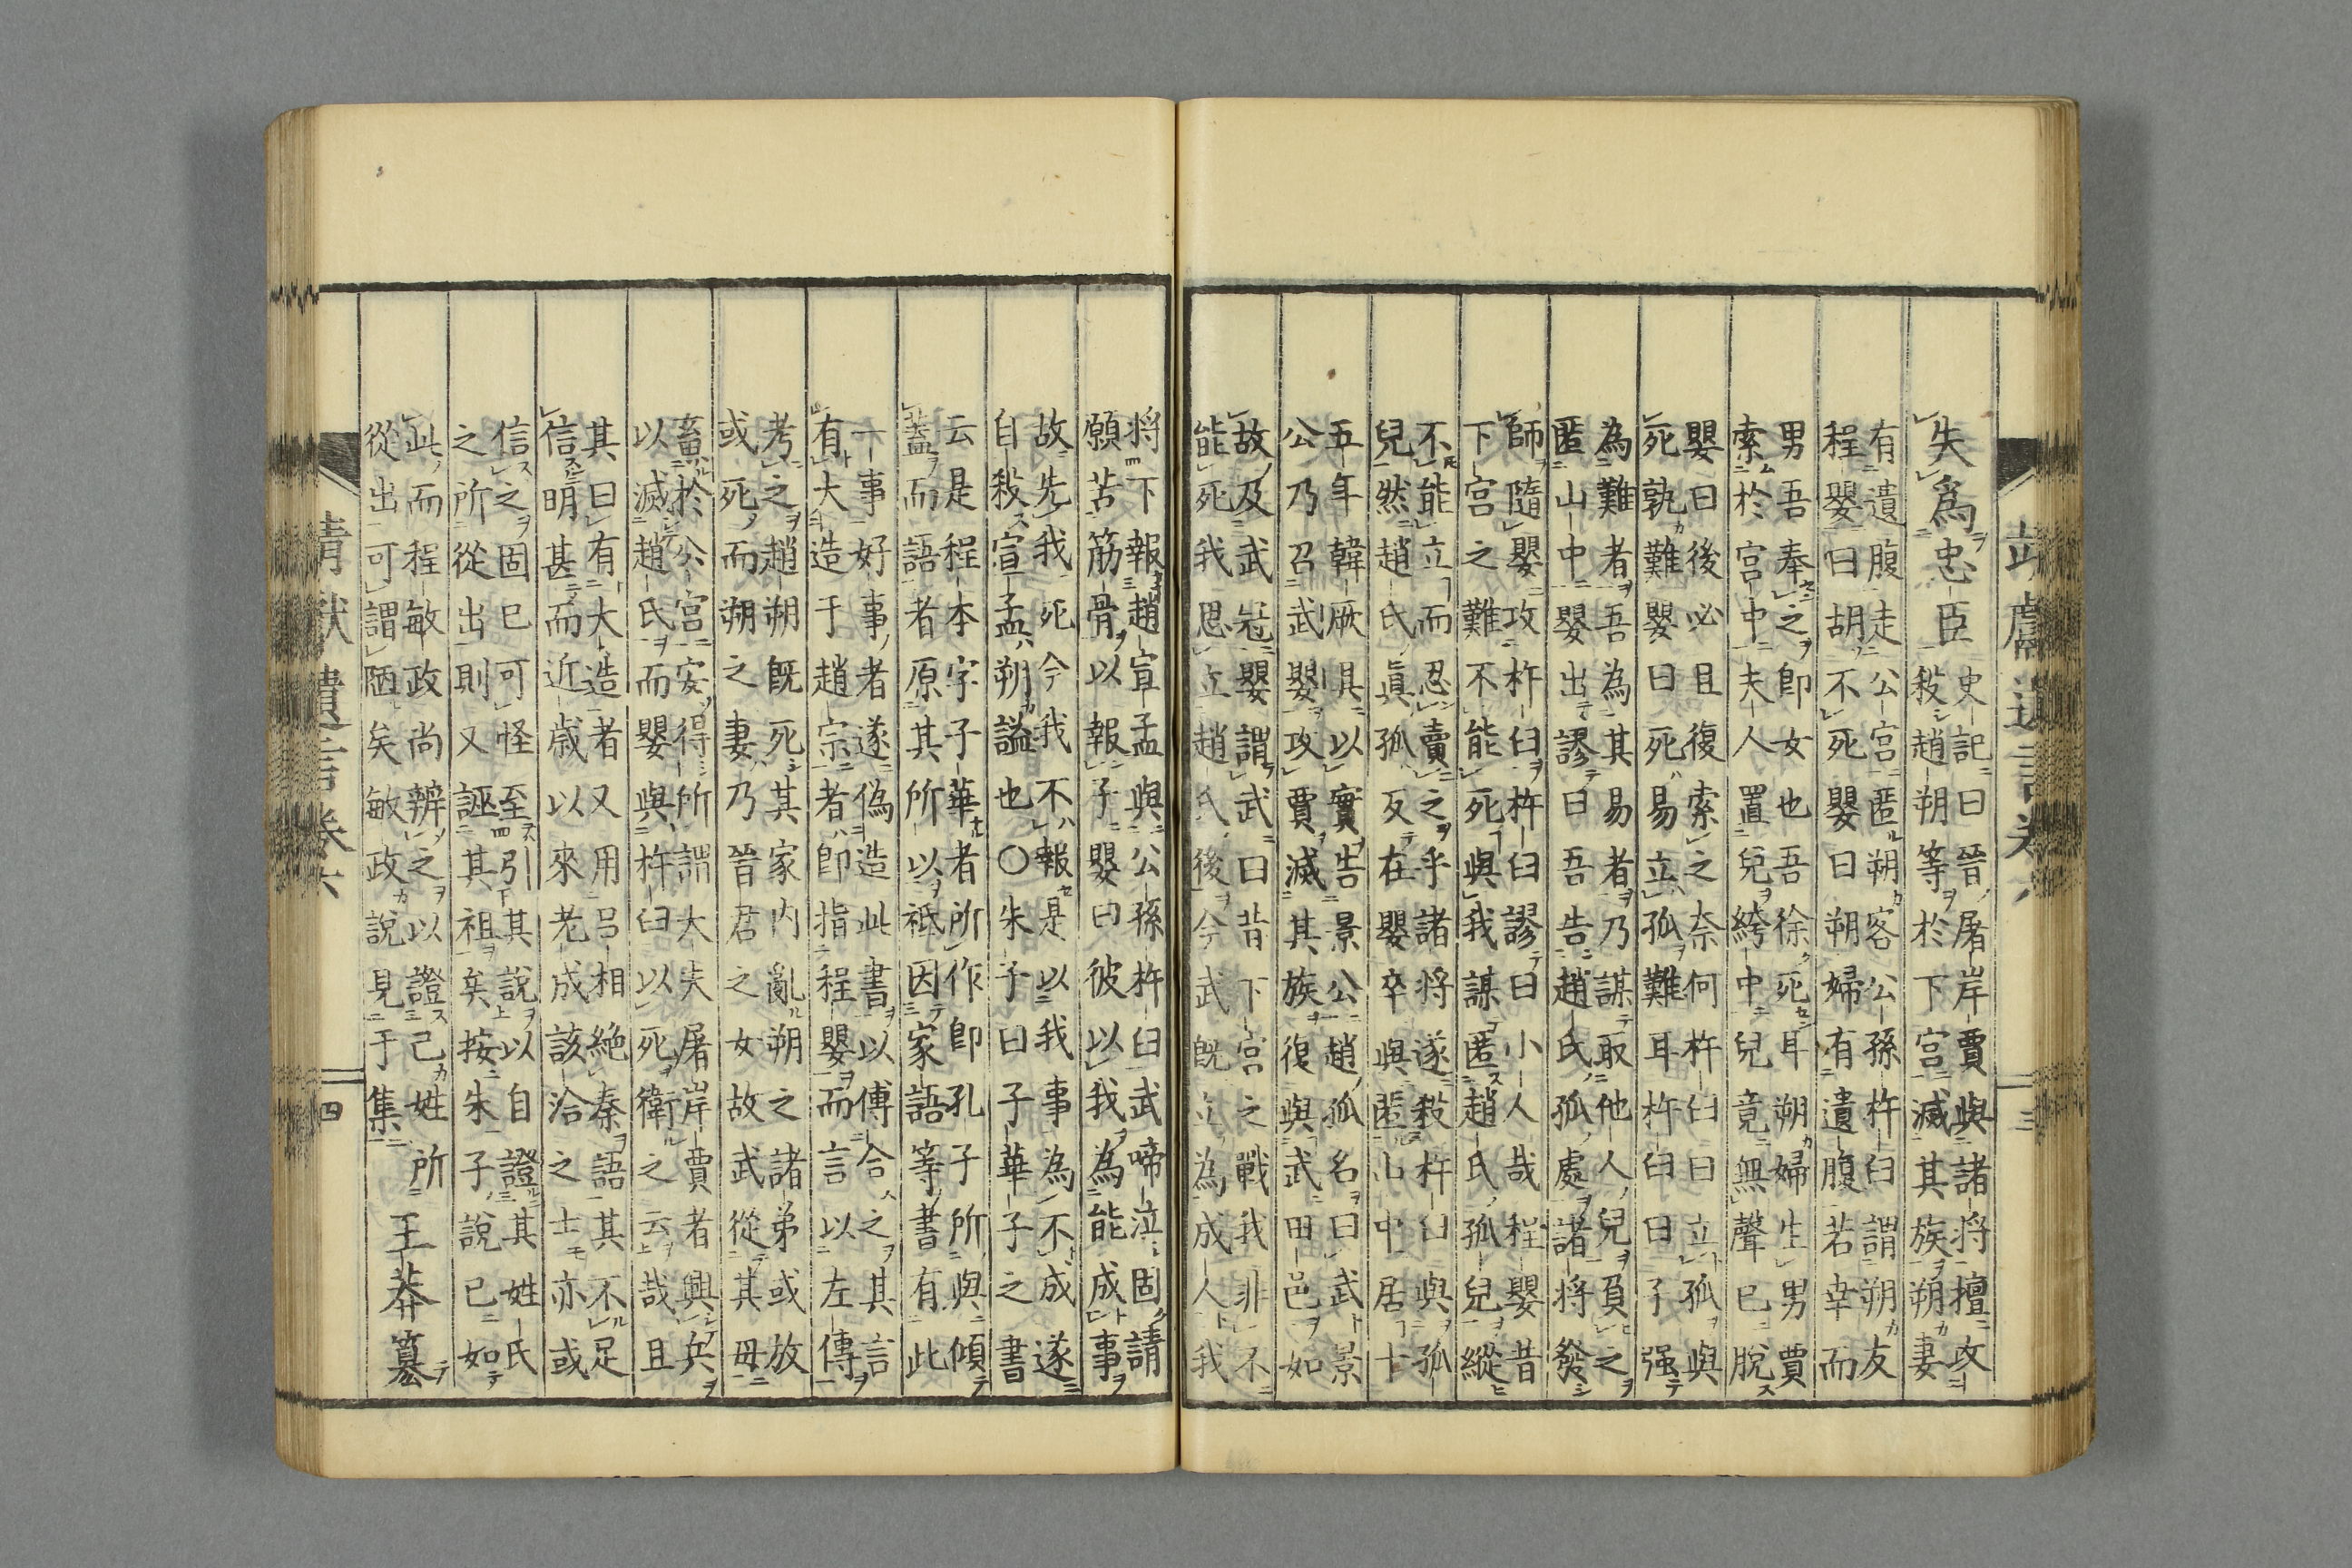 失爲忠臣
史記曰晉屠岸賈與諸將擅攻
殺趙朔等於下宮滅其族朔妻
有遺腹走公宮匿朔客公孫杵臼謂朔友
程嬰曰胡不死嬰曰朔婦有遺腹若幸而
男吾奉之即女也吾徐死耳朔婦生男賈
索於宮中夫人置兒絝中兒竟無聲已脫
嬰曰後必且復索之奈何杵臼曰立孤與
死孰難嬰曰死易立孤難耳杵臼曰子强
為難者吾為其易者乃謀取他人兒負之
匿山中嬰出謬曰吾告趙氏孤處諸將發
師隨嬰攻杵臼杵臼謬曰小人哉程嬰昔
下宮之難不能死與我謀匿趙氏孤兒縱
不能立而忍賣之乎諸將遂殺杵臼與孤
兒然趙氏眞孤反在嬰卒與匿山中居十
五年韓厥具以實告景公趙孤名曰武景
公乃召武嬰攻賈滅其族復與武田邑如
故及武冠嬰謂武曰昔下宮之戰我非不
能死我思立趙氏後今武既立為成人我
將下報趙宣孟與公孫杵臼武啼泣固請
願苦筋骨以報子嬰曰彼以我為能成事
故先我死今我不報是以我事為不成遂
自殺宣孟朔謚也〇朱子曰子華子之書
云是程本字子華者所作即孔子所與傾
蓋而語者原其所以祗因家語等書有此
一事好事者遂偽造此書以傅合之其言
有大造于趙宗者即指程嬰而言以左傳
考之趙朔既死其家内亂朔之諸弟或放
或死而朔之妻乃晉君之女故武從其母
畜於公宮安得所謂大夫屠岸賈者興兵
以滅趙氏而嬰與杵臼以死衛之云哉且
其曰有大造者又用呂相絶秦語其不足
信明甚而近歲以來老成該洽之士亦或
信之固已可怪至引其說以自證其姓氏
之所從出則又誣其祖矣按朱子說已如
此而程敏政尚辨之以證己姓所
從出可謂陋矣敏政說見于集
王莽篡
靖獻遺言卷六
四